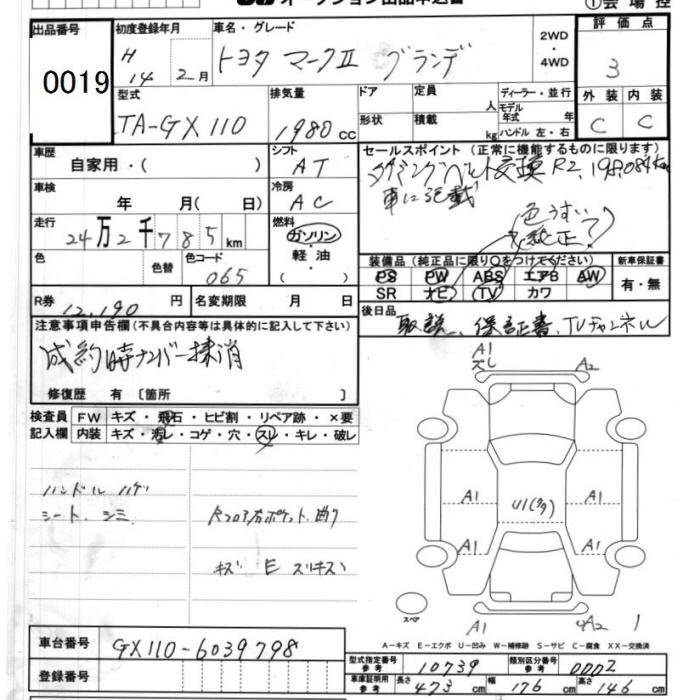 出品番号
0019
初度登録年月
H 14年 2月
車名・グレード
トヨタ マークⅡ グランデ
2WD
・
4WD
①会場控
評価点
3
外装 内装
C C
型式
TA-GX110
排気量
1980 cc
ドア
形状
定員
人
積載
kg
ディーラー・並行
モデル年式 年
ハンドル 左・右
車歴
自家用・( )
シフト
AT
セールスポイント(正常に機能するものに限ります)
タイミングベルト交換 R2, 198,084km
車に記載
(色うすい?)
純正
車検
年 月( 日)
冷房
AC
走行
24万2千785km
燃料
ガソリン
・
軽油
・
( )
色
色替
色コード
065
装備品(純正品に限り○をつけてください)
PS PW ABS エアB AW
SR ナビ TV カワ
新車保証書
有・無
R券
12,190円
名変期限 月 日
後日品
取説、保証書、TVチャンネル
注意事項申告欄(不具合内容等は具体的に記入して下さい)
成約時ナンバー抹消
修復歴 有〔箇所 〕
検査員記入欄
FW キズ・飛石・ヒビ割・リペア跡・×要
内装 キズ・汚レ・コゲ・穴・スレ・キレ・破レ
ハンドル ハゲ
シート シミ
キズ E スリキズ
A1
ズレ
A2
A1 A1
U1(タワ)
A1 A1
スペア
A1
A2
A-キズ E-エクボ U-凹み W-補修跡 S-サビ C-腐食 XX-交換済
車台番号
GX110-6039798
登録番号
型式指定番号
参考
10739
類別区分番号
参考
0002
車庫証明用
参考
長さ 473cm 幅 176cm 高さ 146cm